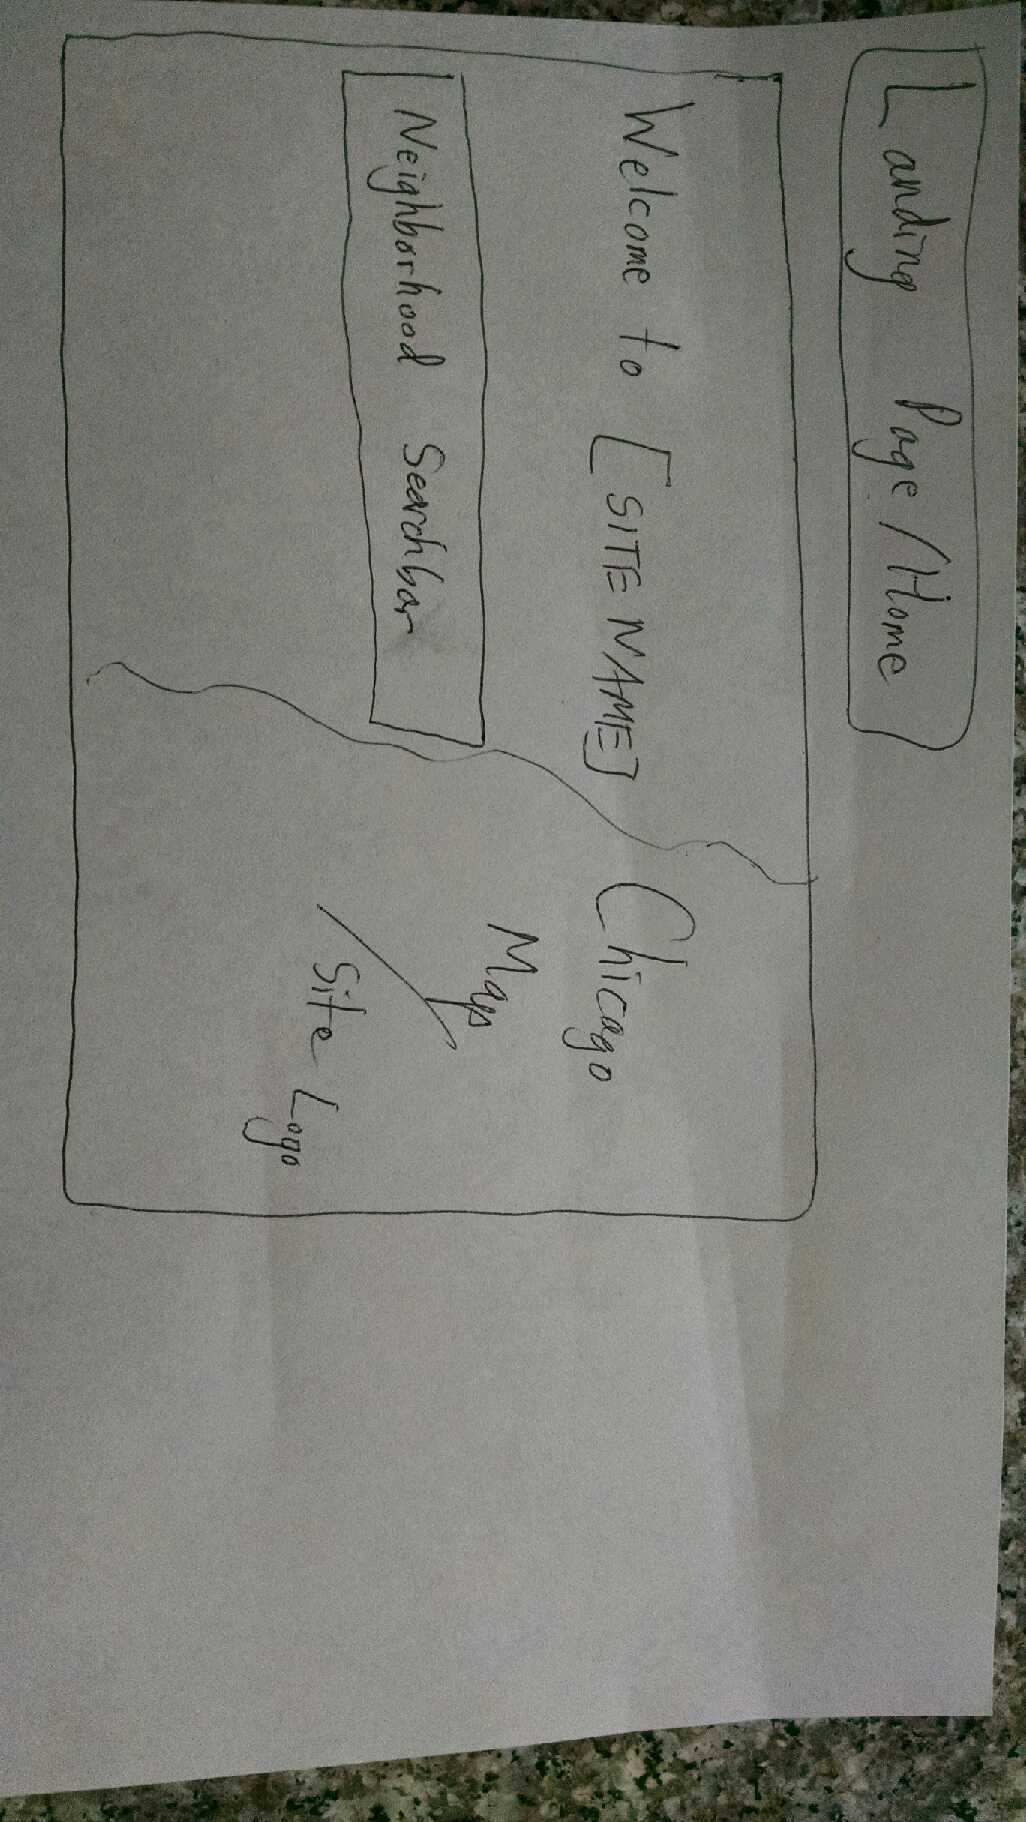 Landing Page/Home
Welcome to [SITE NAME]
Neighborhood Searchbar
Chicago
Map
/
Site Logo